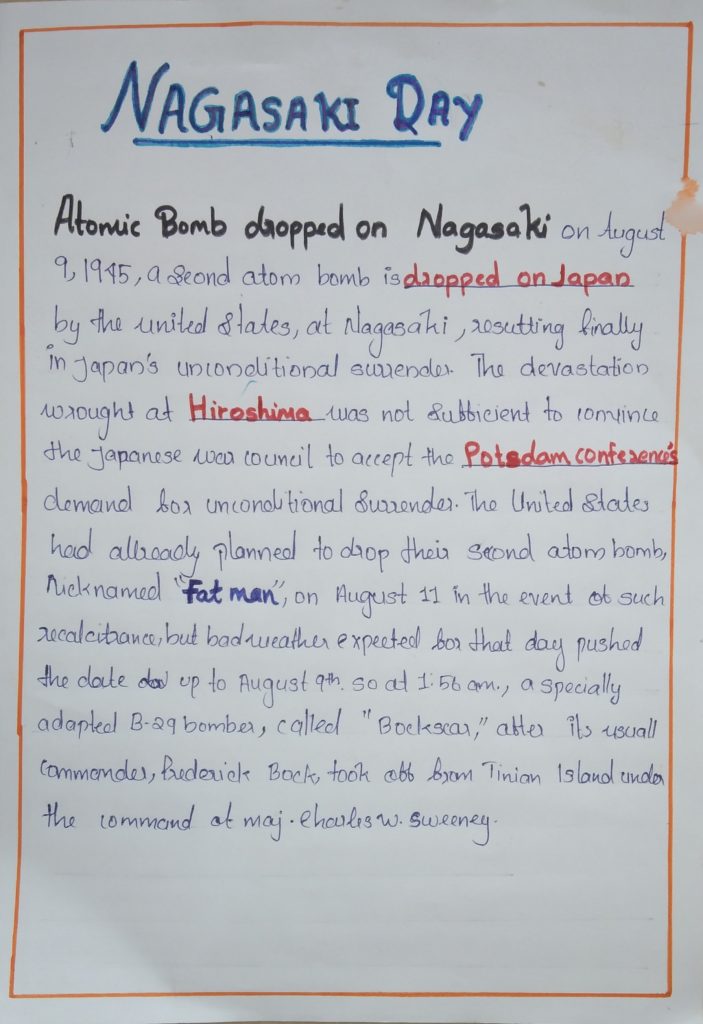 NAGASAKI DAY
Atomic Bomb dropped on Nagasaki on August
9, 1945, a second atom bomb is dropped on Japan
by the united States, at Nagasaki, resutting finally
in Japan's unconditional surrender. The devastation
wrought at Hiroshima was not Subbicient to convince
the Japanese war council to accept the Potsdam conference's
demand for unconditional Surrender. The United States
had allready planned to drop their second atom bomb,
Nicknamed "Fat man", on August 11 in the event of such
recalcitrance, but bad weather expected for that day pushed
the date up to August 9th. so at 1:56 am., a specially
adapted B-29 bomber, called "Bockscar," after its usuall
Commander, Frederick Bock, took off from Tinian Island under
the command of maj. Charles w. Sweeney.